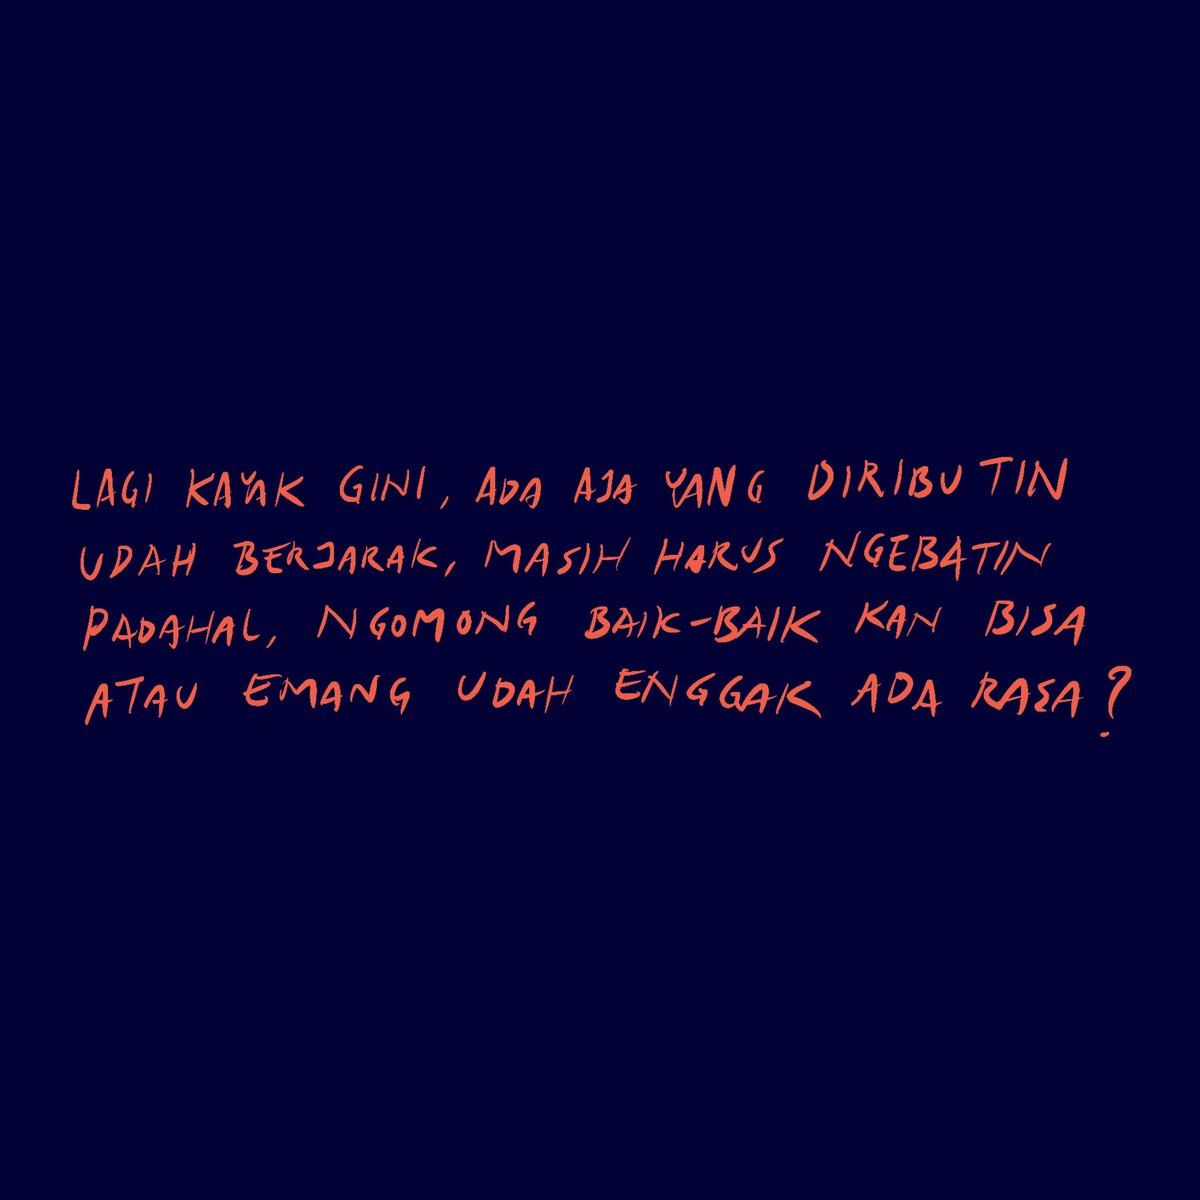 LAGI KAYAK GINI, ADA AJA YANG DIRIBUTIN
UDAH BERJARAK, MASIH HARUS NGEBATIN
PADAHAL, NGOMONG BAIK-BAIK KAN BISA
ATAU EMANG UDAH ENGGAK ADA RASA?